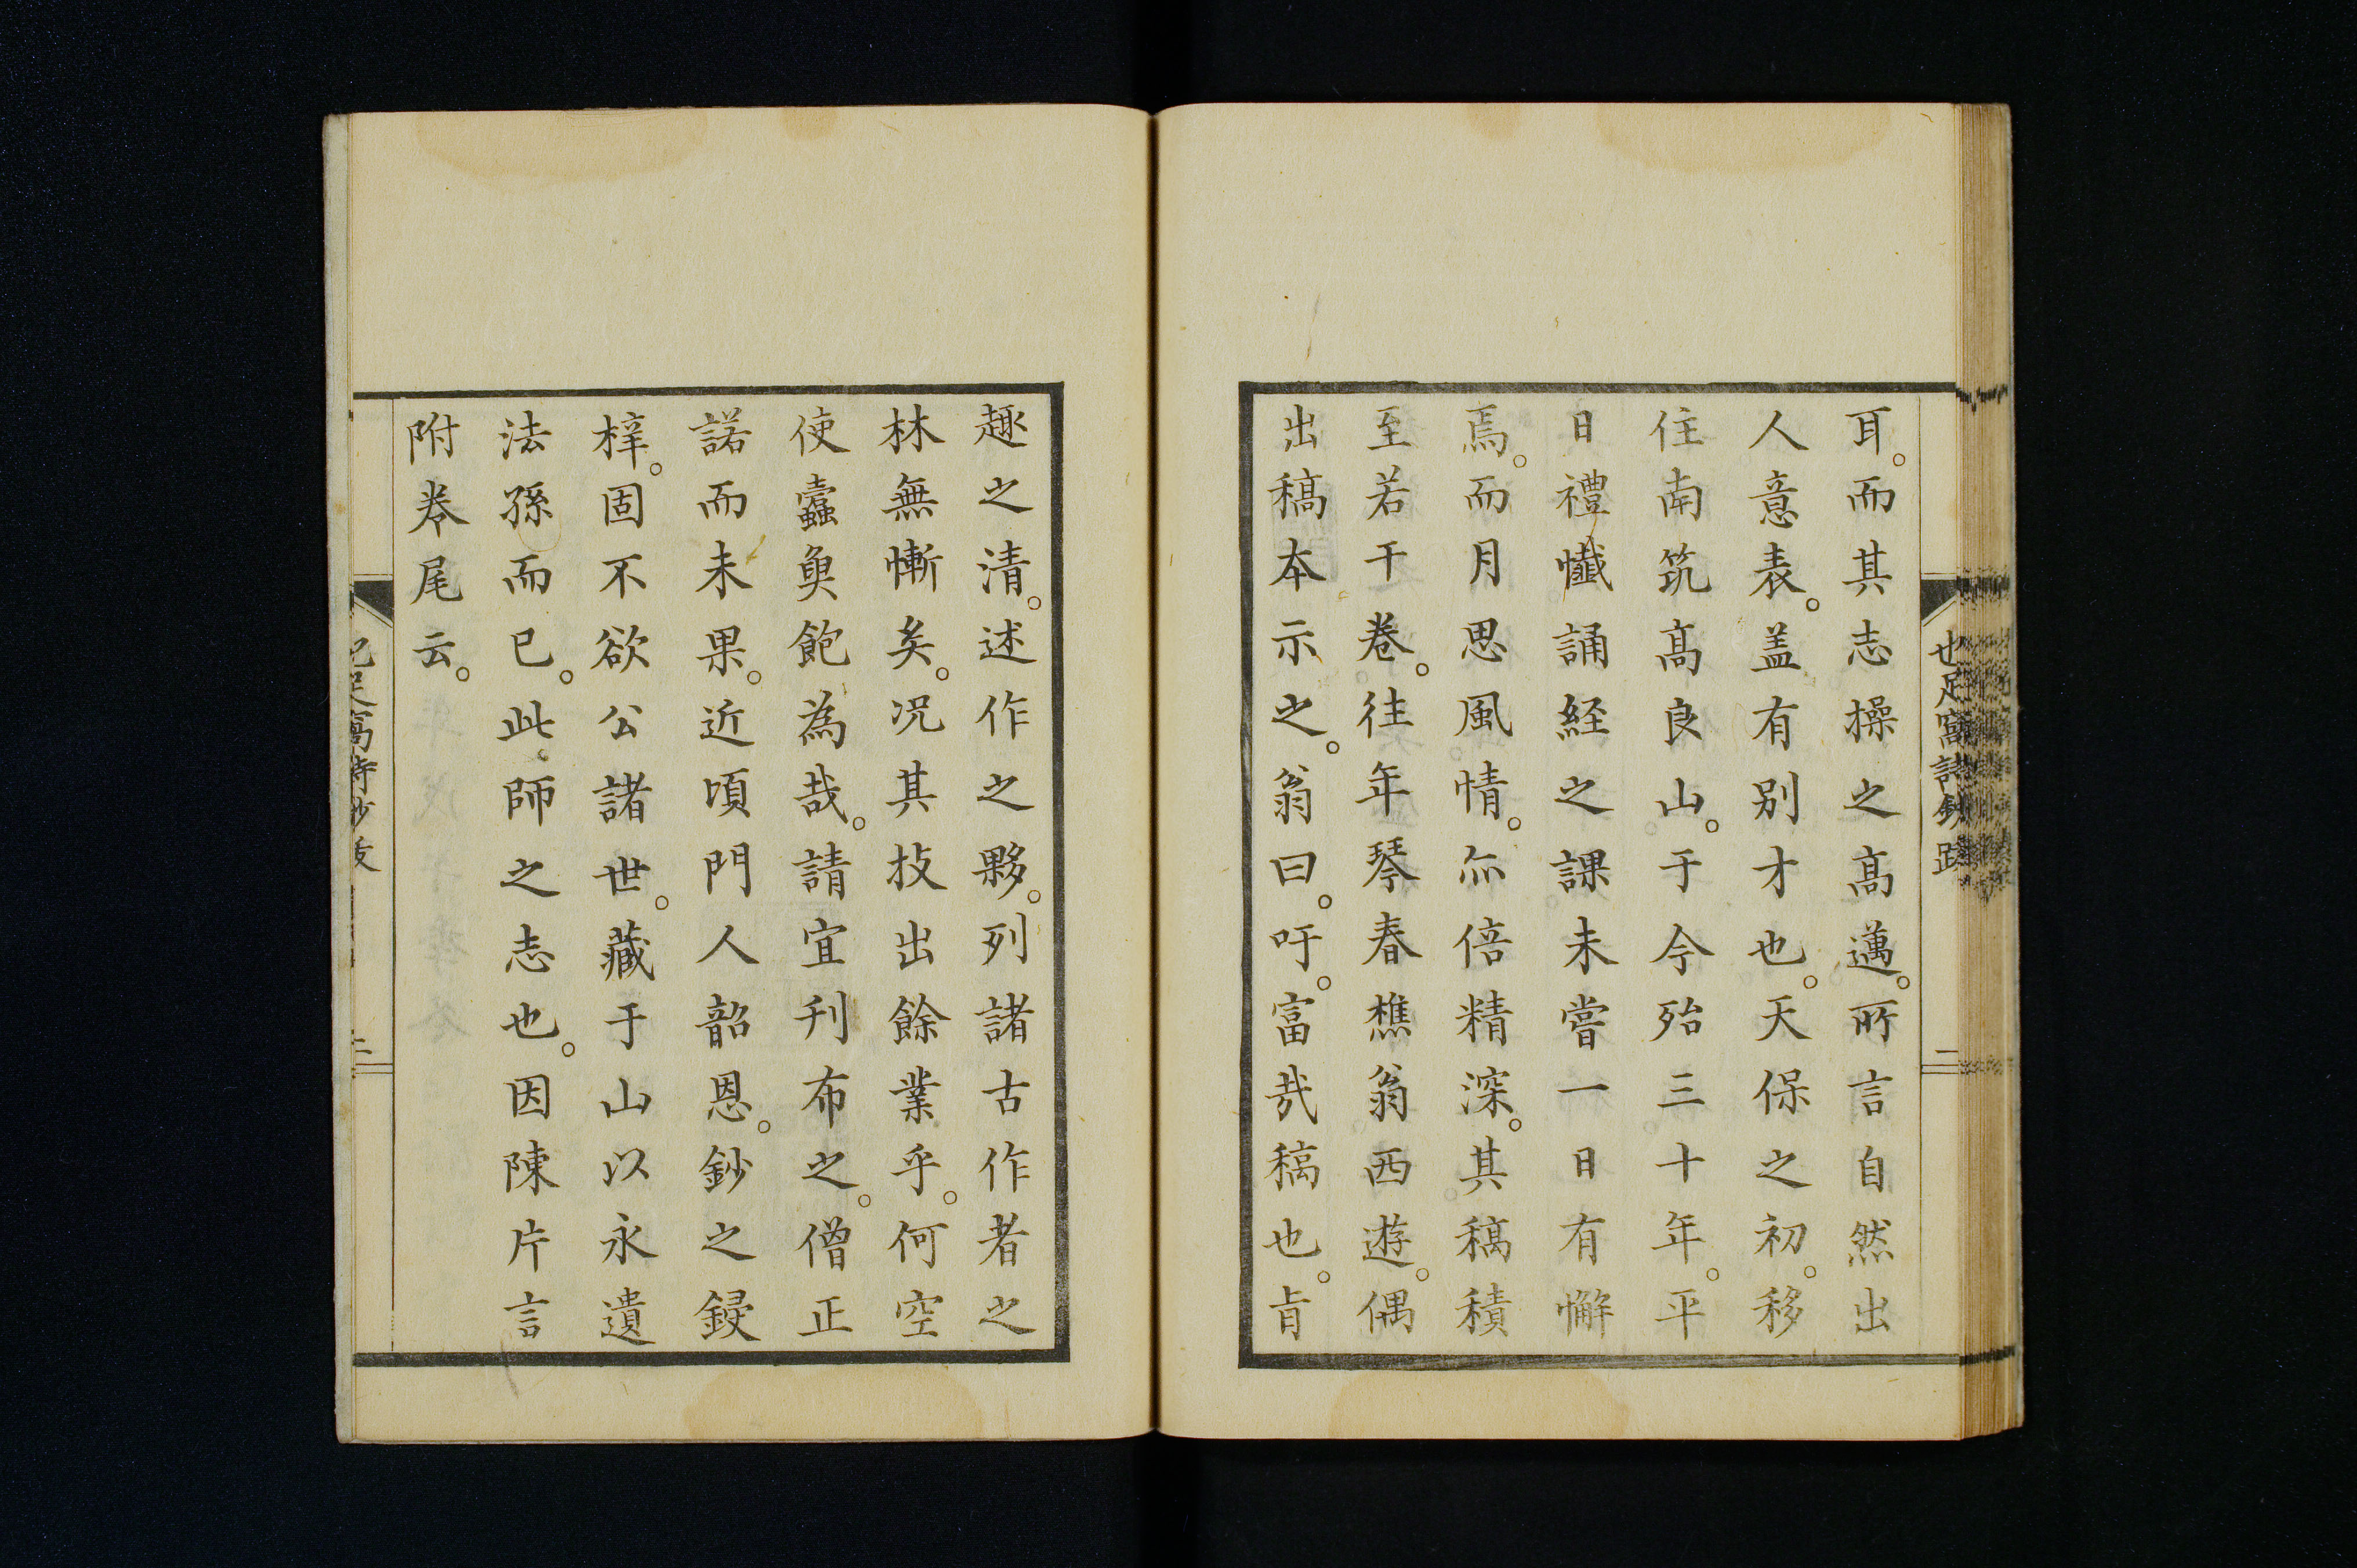 也足窩詩鈔跋
二
耳。而其志操之高邁。所言自然出
人意表。盖有別才也。天保之初。移
住南筑高良山。于今殆三十年。平
日禮懺誦経之課未嘗一日有懈
焉。而月思風情。亦倍精深。其稿積
至若干卷。往年琴春樵翁西遊。偶
出稿本示之。翁曰。吁。富哉稿也。㫖
趣之清。述作之夥。列諸古作者之
林無慚矣。况其技出餘業乎。何空
使蠧奐飽為哉。請宜刊布之。僧正
諾而未果。近頃門人韶恩。鈔之鋟
梓。固不欲公諸世。藏于山以永遺
法孫而已。此師之志也。因陳片言
附卷尾云。
也足窩詩鈔跋
三